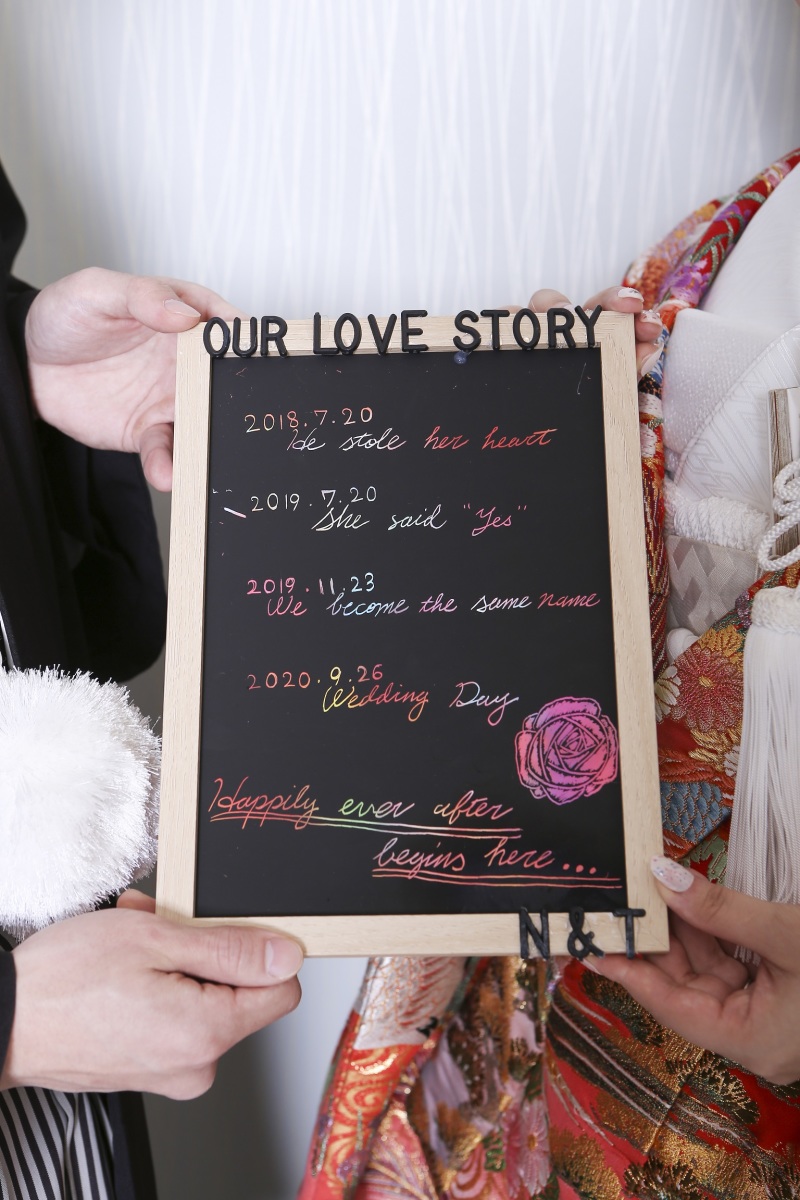 OUR LOVE STORY
2018.7.20
He stole her heart
2019.7.20
She said "Yes"
2019.11.23
We become the same name
2020.9.26
Wedding Day
Happily ever after
begins here...
N & T